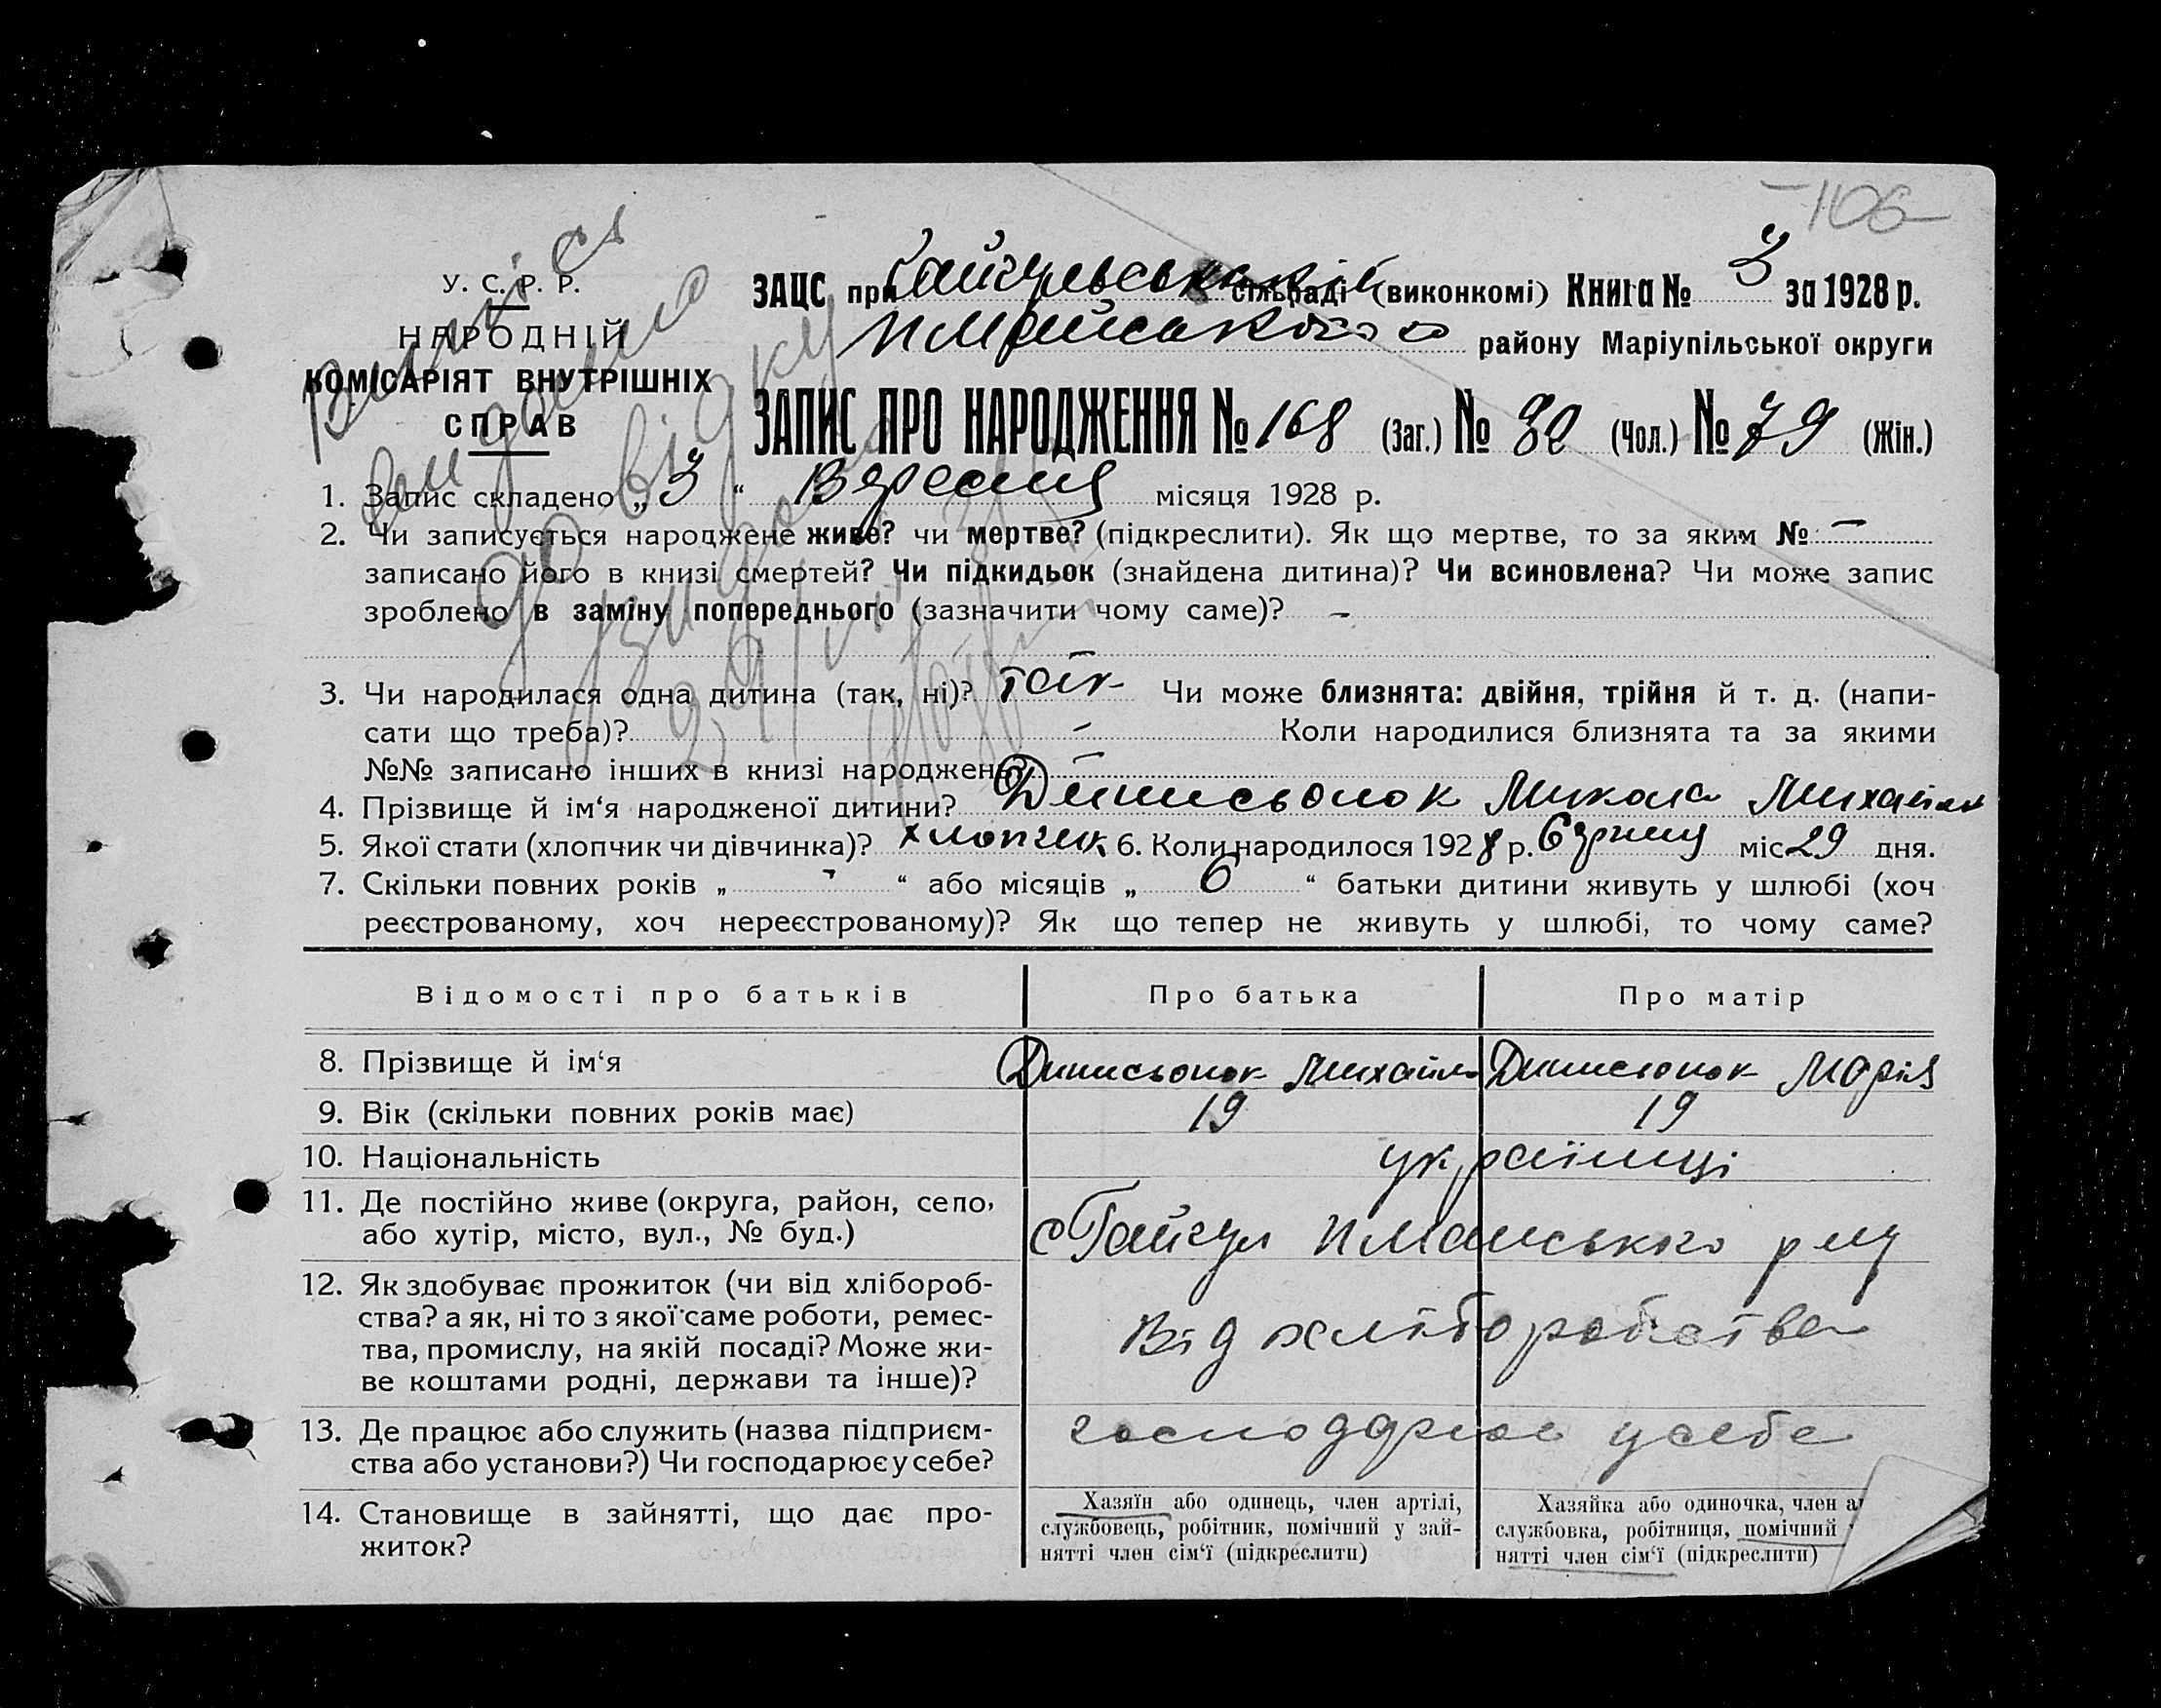 -106-
У. С. Р. Р.
НАРОДНІЙ
КОМІСАРІЯТ ВНУТРІШНІХ
СПРАВ
ЗАЦС при Гайчульський сільраді (виконкомі) Книга № 3 за 1928 р.
району Маріупільської округи
ЗАПИС ПРО НАРОДЖЕННЯ № 168 (Заг.) № (Чол.) № 79 (Жін.)
1. Запис складено „ 3 “ Вересня місяця 1928 р.
2. Чи записується народжене живе? чи мертве? (підкреслити). Як що мертве, то за яким № —
записано його в книзі смертей? Чи підкидьок (знайдена дитина)? Чи всиновлена? Чи може запис
зроблено в заміну попереднього (зазначити чому саме)? -
3. Чи народилася одна дитина (так, ні)? так Чи може близнята: двійня, трійня й т. д. (напи-
сати що треба)? - Коли народилися близнята та за якими
№№ записано інших в книзі народжень? —
4. Прізвище й ім‘я народженої дитини? Динисьонок Микола Михайл
5. Якої стати (хлопчик чи дівчинка)? хлопчик 6. Коли народилося 1928 р. Серпня міс 29 дня.
7. Скільки повних років „ - “ або місяців „ 6 “ батьки дитини живуть у шлюбі (хоч
реєстрованому, хоч нереєстрованому)? Як що тепер не живуть у шлюбі, то чому саме?
Відомості про батьків Про батька Про матір
8. Прізвище й ім‘я Динисьонок Михайло Динисьонок Марія
9. Вік (скільки повних років має) 19 19
10. Національність українці
11. Де постійно живе (округа, район, село,
або хутір, місто, вул., № буд.) с Гайчул
12. Як здобуває прожиток (чи від хлібороб-
ства? а як, ні то з якої саме роботи, ремес-
тва, промислу, на якій посаді? Може жи-
ве коштами родні, держави та інше)? Від хліборобства
13. Де працює або служить (назва підприєм-
ства або установи?) Чи господарює у себе? у себе
14. Становище в зайнятті, що дає про-
житок?
Хазяїн або одинець, член артілі,
службовець, робітник, помічний у зай-
нятті член сім‘ї (підкреслити)
Хазяйка або одиночка, член а
службовка, робітниця, помічний
нятті член сім‘ї (підкреслити)